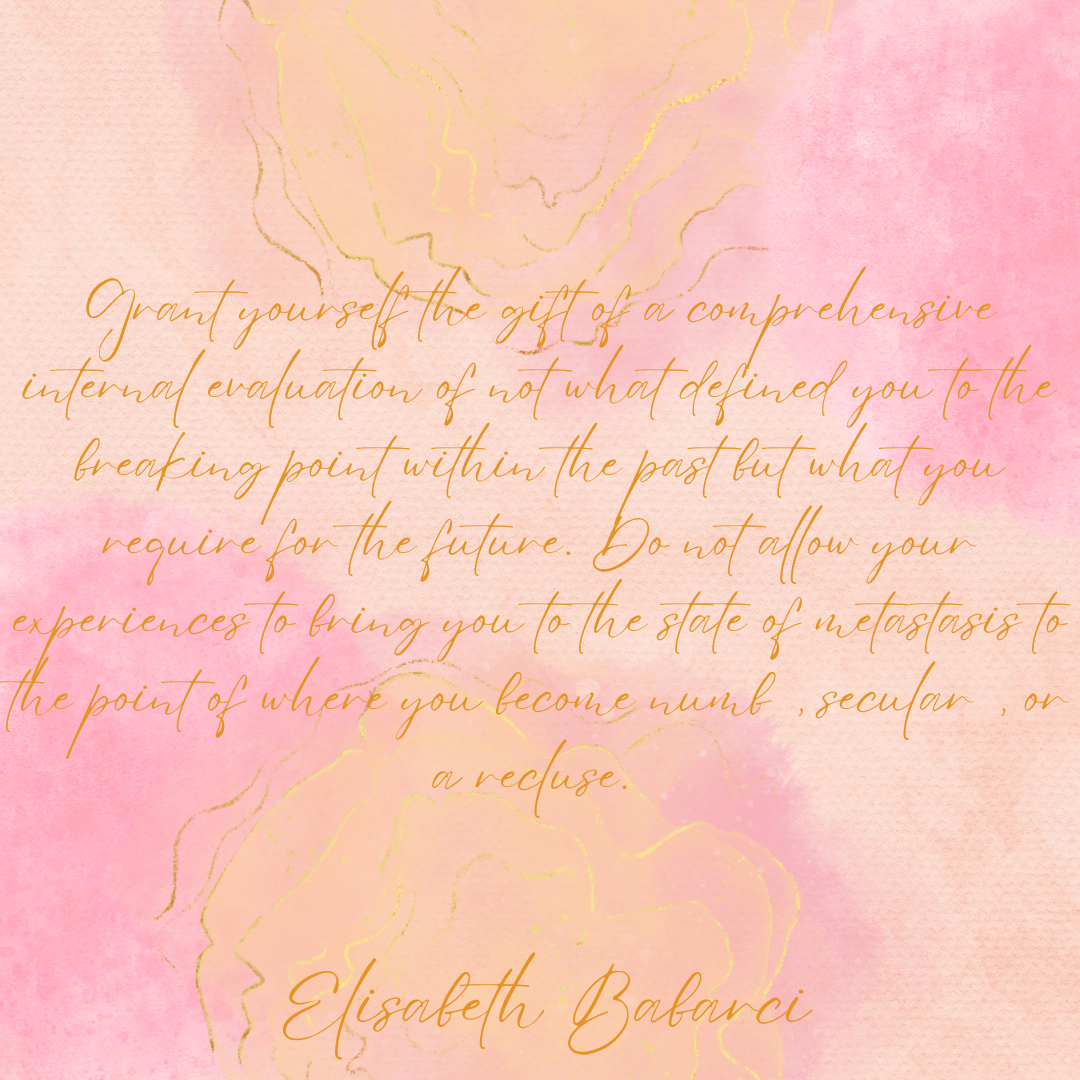 Grant yourself the gift of a comprehensive
internal evaluation of not what defined you to the
breaking point within the past but what you
require for the future. Do not allow your
experiences to bring you to the state of metastasis to
the point of where you become numb , secular , or
a recluse.
Elisabeth Babarci